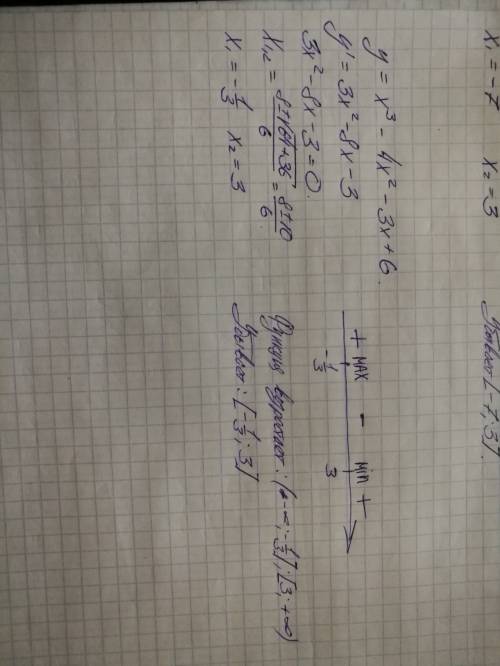 x₁ = -7 x₂ = 3
Убывает [-7; 3].
y = x³ - 4x² - 3x + 6.
y' = 3x² - 8x - 3
3x² - 8x - 3 = 0.
x₁,₂ = (8 ± √(64 + 36))/6 = (8 ± 10)/6
x₁ = -1/3 x₂ = 3
+ MAX - Min +
-1/3 3
Функция возрастает: (-∞; -1/3]; [3; +∞)
Убывает: [-1/3; 3]